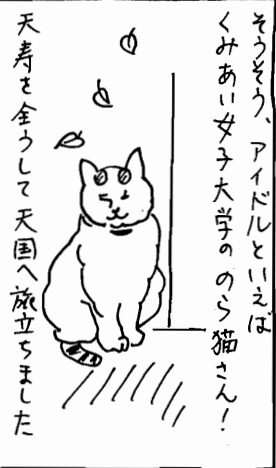 そうそう、アイドルといえば
くみあい女子大学の のら猫さん！
天寿を全うして天国へ旅立ちました